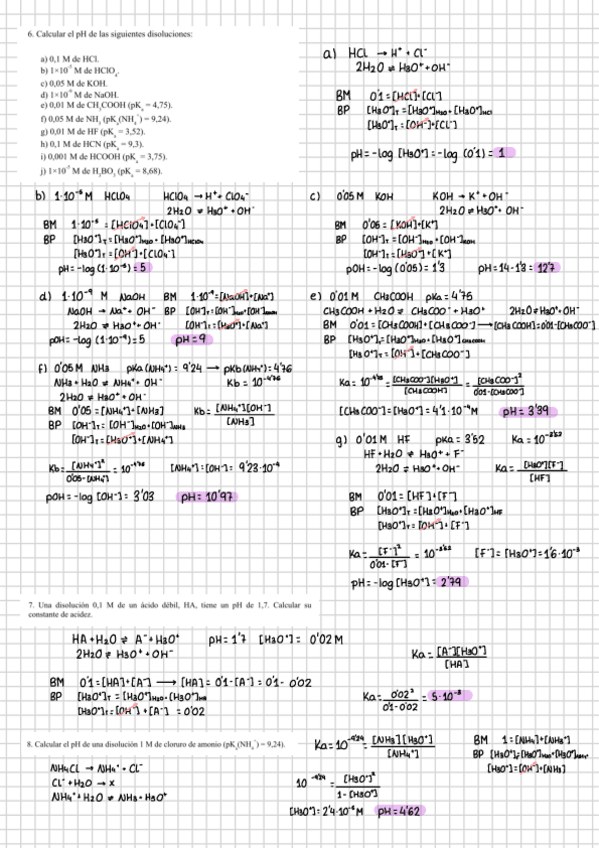 6. Calcular el pH de las siguientes disoluciones:
a) 0,1 M de HCl.
b) 1×10⁻⁵ M de HClO₄.
c) 0,05 M de KOH.
d) 1×10⁻⁹ M de NaOH.
e) 0,01 M de CH₃COOH (pKₐ = 4,75).
f) 0,05 M de NH₃ (pKₐ(NH₄⁺) = 9,24).
g) 0,01 M de HF (pKₐ = 3,52).
h) 0,1 M de HCN (pKₐ = 9,3).
i) 0,001 M de HCOOH (pKₐ = 3,75).
j) 1×10⁻⁷ M de H₃BO₃ (pKₐ = 8,68).
a) HCl → H⁺ + Cl⁻
2H₂O ⇌ H₃O⁺ + OH⁻
BM 0'1 = [HCl] + [Cl⁻]
BP [H₃O⁺]T = [H₃O⁺]H₂O + [H₃O⁺]HCl
[H₃O⁺]T = [OH⁻] + [Cl⁻]
pH = -log [H₃O⁺] = -log (0'1) = 1
b) 1·10⁻⁵ M HClO₄ HClO₄ → H⁺ + ClO₄⁻
2H₂O ⇌ H₃O⁺ + OH⁻
BM 1·10⁻⁵ = [HClO₄] + [ClO₄⁻]
BP [H₃O⁺]T = [H₃O⁺]H₂O + [H₃O⁺]HClO₄
[H₃O⁺]T = [OH⁻] + [ClO₄⁻]
pH = -log (1·10⁻⁵) = 5
c) 0'05 M KOH KOH → K⁺ + OH⁻
2H₂O ⇌ H₃O⁺ + OH⁻
BM 0'05 = [KOH] + [K⁺]
BP [OH⁻]T = [OH⁻]H₂O + [OH⁻]KOH
[OH⁻]T = [H₃O⁺] + [K⁺]
pOH = -log (0'05) = 1'3 pH = 14 - 1'3 = 12'7
d) 1·10⁻⁹ M NaOH BM 1·10⁻⁹ = [NaOH] + [Na⁺]
NaOH → Na⁺ + OH⁻ BP [OH⁻]T = [OH⁻]H₂O + [OH⁻]NaOH
2H₂O ⇌ H₃O⁺ + OH⁻ [OH⁻]T = [H₃O⁺] + [Na⁺]
pOH = -log (1·10⁻⁹) = 5 pH = 9
e) 0'01 M CH₃COOH pKa = 4'75
CH₃COOH + H₂O ⇌ CH₃COO⁻ + H₃O⁺ 2H₂O ⇌ H₃O⁺ + OH⁻
BM 0'01 = [CH₃COOH] + [CH₃COO⁻] → [CH₃COOH] = 0'01 - [CH₃COO⁻]
BP [H₃O⁺]T = [H₃O⁺]H₂O + [H₃O⁺]CH₃COOH
[H₃O⁺]T = [OH⁻] + [CH₃COO⁻]
Ka = 10⁻⁴'⁷⁵ = [CH₃COO⁻][H₃O⁺] / [CH₃COOH] = [CH₃COO⁻]² / 0'01-[CH₃COO⁻]
[CH₃COO⁻] = [H₃O⁺] = 4'1·10⁻⁴ M pH = 3'39
f) 0'05 M NH₃ pKa (NH₄⁺) = 9'24 → pKb (NH₄⁺) = 4'76
NH₃ + H₂O ⇌ NH₄⁺ + OH⁻ Kb = 10⁻⁴'⁷⁶
2H₂O ⇌ H₃O⁺ + OH⁻
BM 0'05 = [NH₄⁺] + [NH₃] Kb = [NH₄⁺][OH⁻] / [NH₃]
BP [OH⁻]T = [OH⁻]H₂O + [OH⁻]NH₃
[OH⁻]T = [H₃O⁺] + [NH₄⁺]
Kb = [NH₄⁺]² / 0'05-[NH₄⁺] = 10⁻⁴'⁷⁶ [NH₄⁺] = [OH⁻] = 9'23·10⁻⁴
pOH = -log [OH⁻] = 3'03 pH = 10'97
g) 0'01 M HF pKa = 3'52 Ka = 10⁻³'⁵²
HF + H₂O ⇌ H₃O⁺ + F⁻
2H₂O ⇌ H₃O⁺ + OH⁻ Ka = [H₃O⁺][F⁻] / [HF]
BM 0'01 = [HF] + [F⁻]
BP [H₃O⁺]T = [H₃O⁺]H₂O + [H₃O⁺]HF
[H₃O⁺]T = [OH⁻] + [F⁻]
Ka = [F⁻]² / 0'01-[F⁻] = 10⁻³'⁵² [F⁻] = [H₃O⁺] = 1'6·10⁻³
pH = -log [H₃O⁺] = 2'79
7. Una disolución 0,1 M de un ácido débil, HA, tiene un pH de 1,7. Calcular su
constante de acidez.
HA + H₂O ⇌ A⁻ + H₃O⁺ pH = 1'7 [H₃O⁺] = 0'02 M
2H₂O ⇌ H₃O⁺ + OH⁻ Ka = [A⁻][H₃O⁺] / [HA]
BM 0'1 = [HA] + [A⁻] → [HA] = 0'1 - [A⁻] = 0'1 - 0'02
BP [H₃O⁺]T = [H₃O⁺]H₂O + [H₃O⁺]HA Ka = 0'02² / 0'1-0'02 = 5·10⁻³
[H₃O⁺]T = [OH⁻] + [A⁻] = 0'02
8. Calcular el pH de una disolución 1 M de cloruro de amonio (pKₐ(NH₄⁺) = 9,24).
NH₄Cl → NH₄⁺ + Cl⁻
Cl⁻ + H₂O → x
NH₄⁺ + H₂O ⇌ NH₃ + H₃O⁺
Ka = 10⁻⁹'²⁴ = [NH₃][H₃O⁺] / [NH₄⁺]
10⁻⁹'²⁴ = [H₃O⁺]² / 1-[H₃O⁺]
[H₃O⁺] = 2'4·10⁻⁵ M pH = 4'62
BM 1 = [NH₄⁺] + [NH₃]
BP [H₃O⁺]T = [H₃O⁺]H₂O + [H₃O⁺]NH₄⁺
[H₃O⁺] = [OH⁻] + [NH₃]